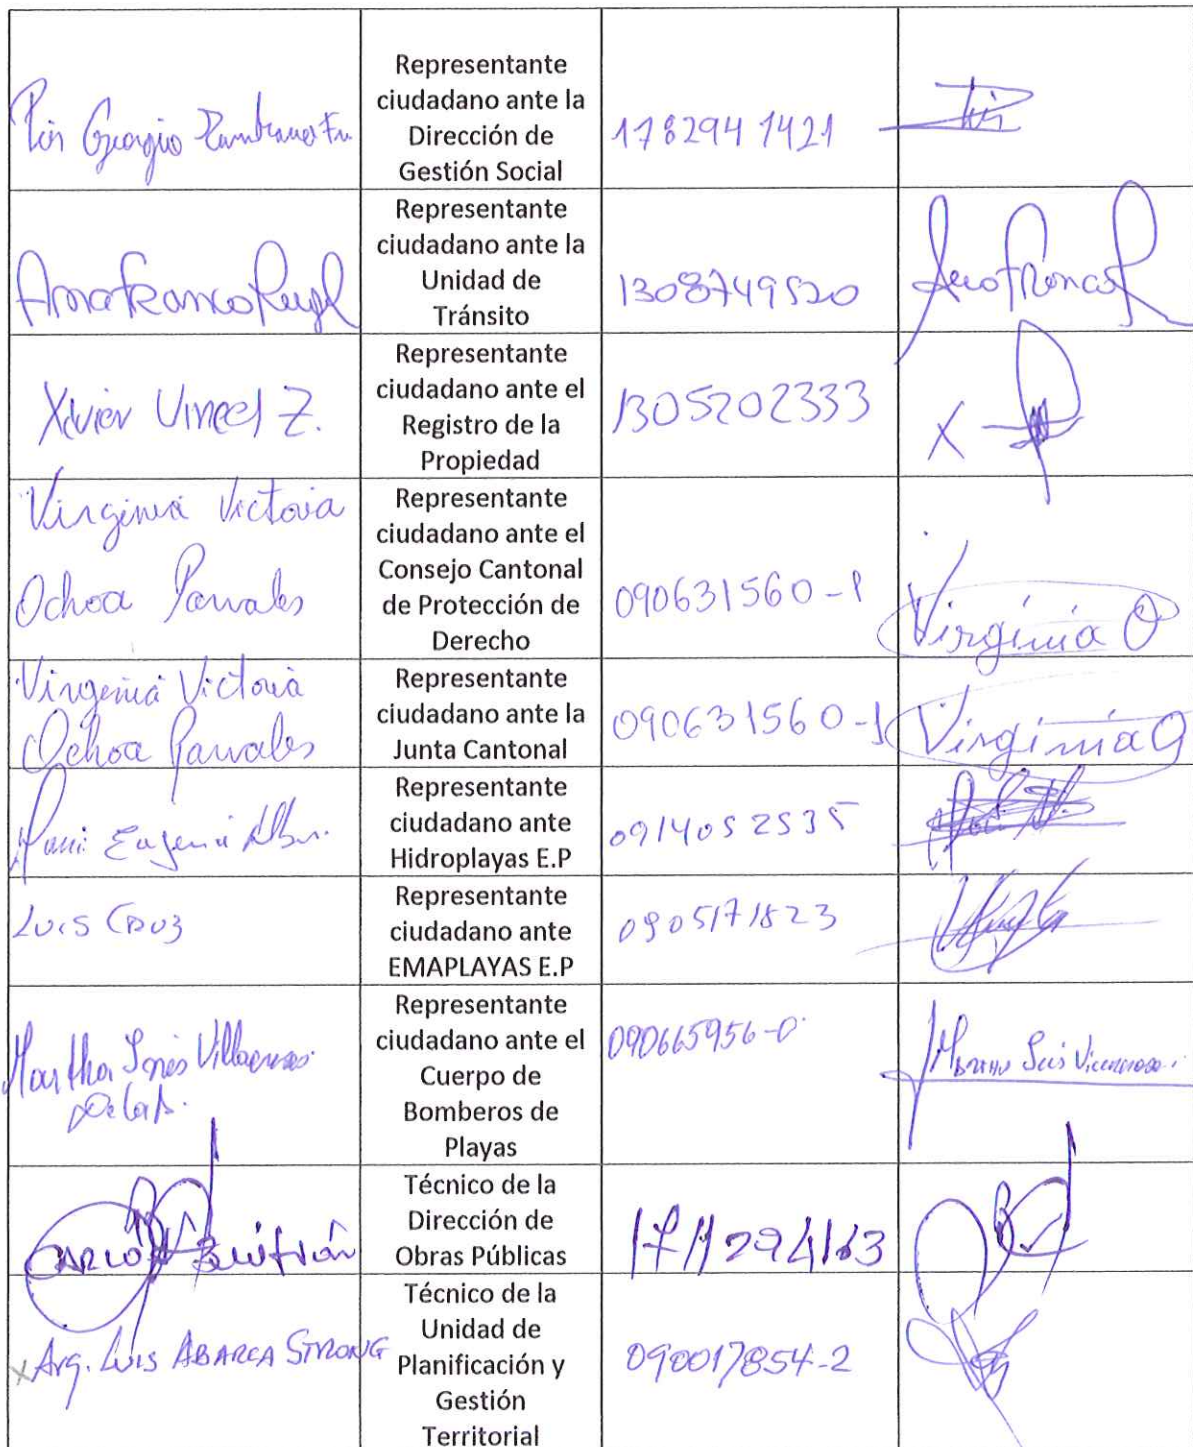 Giorgio Zambrano
Representante
ciudadano ante la
Dirección de
Gestión Social
1782947421
Ana Franco
Representante
ciudadano ante la
Unidad de
Tránsito
1308749520
Ana Franco R
Xavier Z.
Representante
ciudadano ante el
Registro de la
Propiedad
1305202333
X
Virginia Victoria
Ochoa Parrales
Representante
ciudadano ante el
Consejo Cantonal
de Protección de
Derecho
090631560-1
Virginia O
Virginia Victoria
Ochoa Parrales
Representante
ciudadano ante la
Junta Cantonal
090631560-1
Virginia O
Eugenia
Representante
ciudadano ante
Hidroplayas E.P
0914052535
Luis Cruz
Representante
ciudadano ante
EMAPLAYAS E.P
0905171823
Martha Inés
Representante
ciudadano ante el
Cuerpo de
Bomberos de
Playas
090665956-0
Carlos Buitrón
Técnico de la
Dirección de
Obras Públicas
x Arq. Luis ABARCA STRONG
Técnico de la
Unidad de
Planificación y
Gestión
Territorial
090017854-2